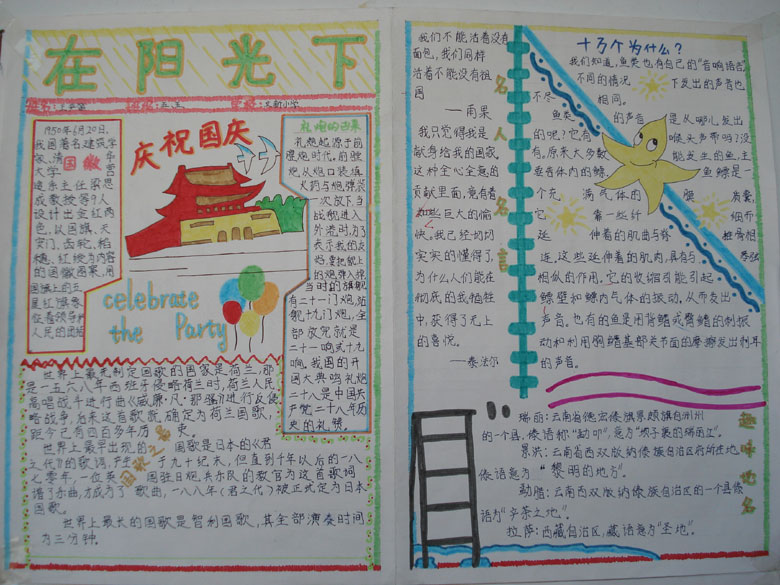 在阳光下
庆祝国庆
celebrate
the Party
1950年6月20日,
我国著名建筑学
家、清国徽华
大学营
建系主任梁思
成教授等9人
设计出金红两
色,以国旗、天
安门、齿轮、稻
穗、红绫为内容
的国徽图案,用
国旗上的五
星红旗象
征着领导
人民的团结
礼炮的由来
礼炮起源于前
膛炮时代,前膛
炮从炮口装填
火药与炮弹,装
一次放下,当
战舰进入
外港时,为了
表示我的友
好,要把舰上
的炮弹入掉,
当时的旗舰
有二十一门炮,站
舰十九门炮,全
部放完就是
二十一响或十九
响。我国的开
国大典鸣礼炮
二十八是中国共
产党二十八年历
史的礼赞。
世界上最先制定国歌的国家是荷兰,那
是一五六八年西班牙侵略荷兰时,荷兰人民
高唱战斗进行曲《威廉·凡·那骚》进行反侵
略战争,后来这首歌就确定为荷兰国歌,
距今已有四百多年历史。
世界上最早出现的国歌是日本的《君
之代》的歌词,产生于九十纪末,但直到千年以后的一八
七零年,一位英国驻日炮兵乐队的教官为这首歌词
谱了乐曲,才成为了歌曲,一八八年《君之代》被正式定为日本
国歌。
世界上最长的国歌是智利国歌,其全部演奏时间
为三分钟。
我们不能活着没有
面包,我们同样
活着不能没有祖
国
——雨果
我只觉得我是
献身给我的国家。
这种全心全意的
贡献里面,竟有着
如此巨大的愉
快。我已经切切
实实的懂得了,
为什么人们能在
彻底的自我牺牲
中,获得了无上
的喜悦。
——泰法尔
名人名言
十万个为什么?
我们知道,鱼类也有自己的"音响语言",
不同的情况下发出的声音也
不尽相同。
鱼类的声音是从哪儿发出
的呢?它有喉头声带吗?没
有。原来大多数能发生的鱼,主
要音体内的鳔。鱼鳔是一
个充满气体的膜质囊,
它靠一些纤细而
延伸着的肌肉与脊椎骨相
连,这些延伸着的肌肉,具有与琴弦
相似的作用。它的收缩可能引起
鳔壁和鳔内气体的振动,从而发出
声音。也有的鱼是用背鳍或臀鳍的刺振
动和利用胸鳍基部关节面的摩擦发出刺耳
的声音。
趣味地名
瑞丽:云南省德宏傣族景颇族自州州
的一个县,傣语称"勐卯",意为"坝子裹的瑞丽江"。
景洪:云南省西双版纳傣族自治区府所在地。
傣语意为"黎明的地方"。
勐腊:云南西双版纳傣族自治区的一个县傣
语为"产茶之地"。
拉萨:西藏自治区,藏语意为"圣地"。